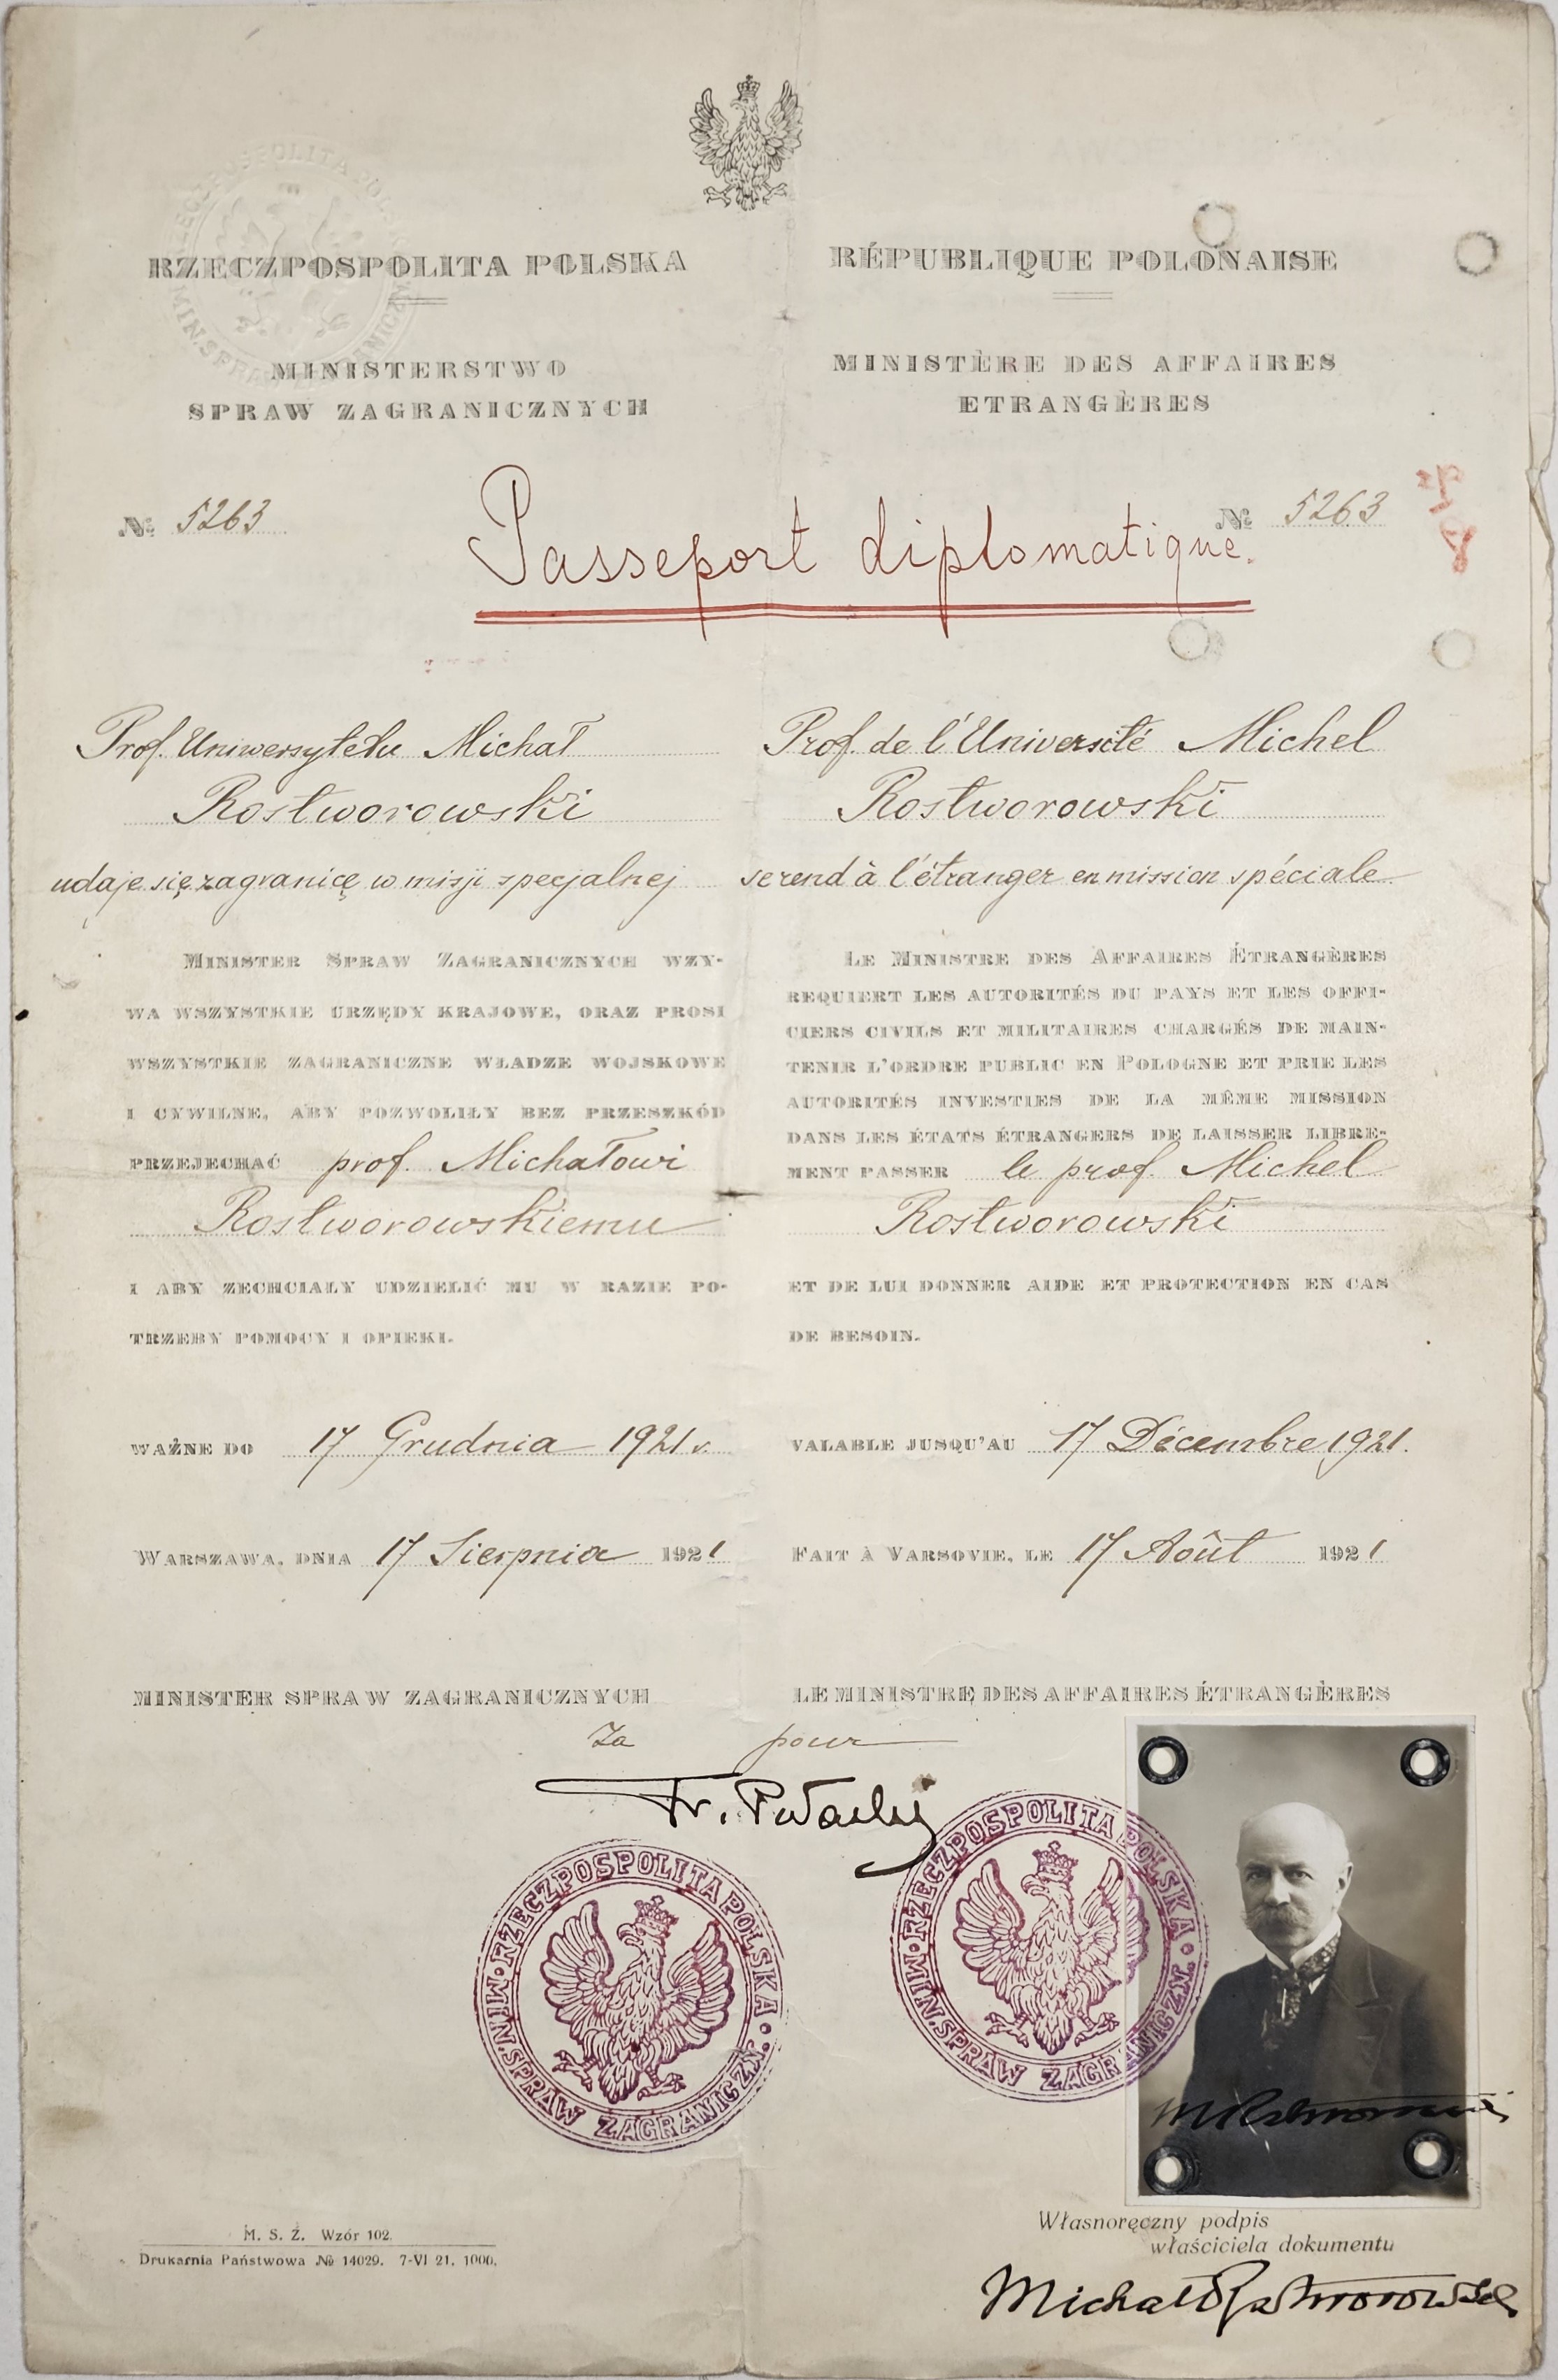 RZECZPOSPOLITA POLSKA
MINISTERSTWO
SPRAW ZAGRANICZNYCH
RÉPUBLIQUE POLONAISE
MINISTÈRE DES AFFAIRES
ETRANGÈRES
№ 5263
№ 5263
Passeport diplomatique.
Prof. Uniwersytetu Michał
Rostworowski
udaje się zagranicę w misji specjalnej
MINISTER SPRAW ZAGRANICZNYCH WZY-
WA WSZYSTKIE URZĘDY KRAJOWE, ORAZ PROSI
WSZYSTKIE ZAGRANICZNE WŁADZE WOJSKOWE
I CYWILNE, ABY POZWOLIŁY BEZ PRZESZKÓD
PRZEJECHAĆ prof. Michałowi
Rostworowskiemu
I ABY ZECHCIAŁY UDZIELIĆ MU W RAZIE PO-
TRZEBY POMOCY I OPIEKI.
WAŻNE DO 17 Grudnia 1921 r.
WARSZAWA, DNIA 17 Sierpnia 1921
MINISTER SPRAW ZAGRANICZNYCH
Za
Prof. de l'Université Michel
Rostworowski
se rend à l'étranger en mission spéciale
LE MINISTRE DES AFFAIRES ÉTRANGÈRES
REQUIERT LES AUTORITÉS DU PAYS ET LES OFFI-
CIERS CIVILS ET MILITAIRES CHARGÉS DE MAIN-
TENIR L'ORDRE PUBLIC EN POLOGNE ET PRIE LES
AUTORITÉS INVESTIES DE LA MÊME MISSION
DANS LES ÉTATS ÉTRANGERS DE LAISSER LIBRE-
MENT PASSER le prof. Michel
Rostworowski
ET DE LUI DONNER AIDE ET PROTECTION EN CAS
DE BESOIN.
VALABLE JUSQU'AU 17 Décembre 1921.
FAIT À VARSOVIE, LE 17 Aôut 1921
LE MINISTRE DES AFFAIRES ÉTRANGÈRES
pour
Fr.
RZECZPOSPOLITA POLSKA
MIN. SPRAW ZAGRANICZN.
RZECZPOSPOLITA POLSKA
MIN. SPRAW ZAGRANICZN.
M Rostworowski
Własnoręczny podpis
właściciela dokumentu
Michał Rostworowski
M. S. Z. Wzór 102.
Drukarnia Państwowa № 14029. 7-VI 21. 1000.